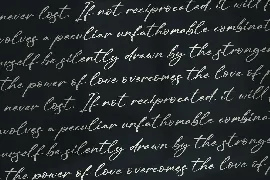 never lost. If not reciprocated, it will f
volves a peculiar unfathomable combinat
urself be silently drawn by the stronges
the power of love overcomes the love of p
never lost. If not reciprocated, it will f
volves a peculiar unfathomable combinat
urself be silently drawn by the strong
the power of love overcomes the love of